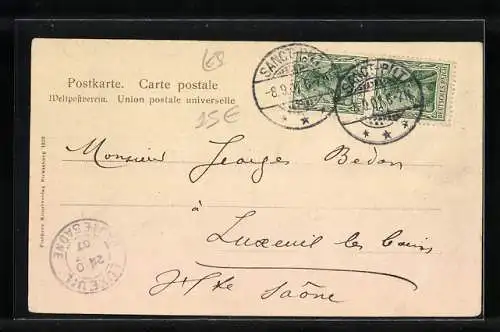 LB
SANCT-PILT
-8.9.07
SANCT-PILT
DEUTSCHES REICH
Postkarte. Carte postale
Weltpostverein. Union postale universelle
15€
Monsieur Georges Bedon
à
Luxeuil les bains
Hte Saône
LUXEUIL
HTE SAÔNE
07